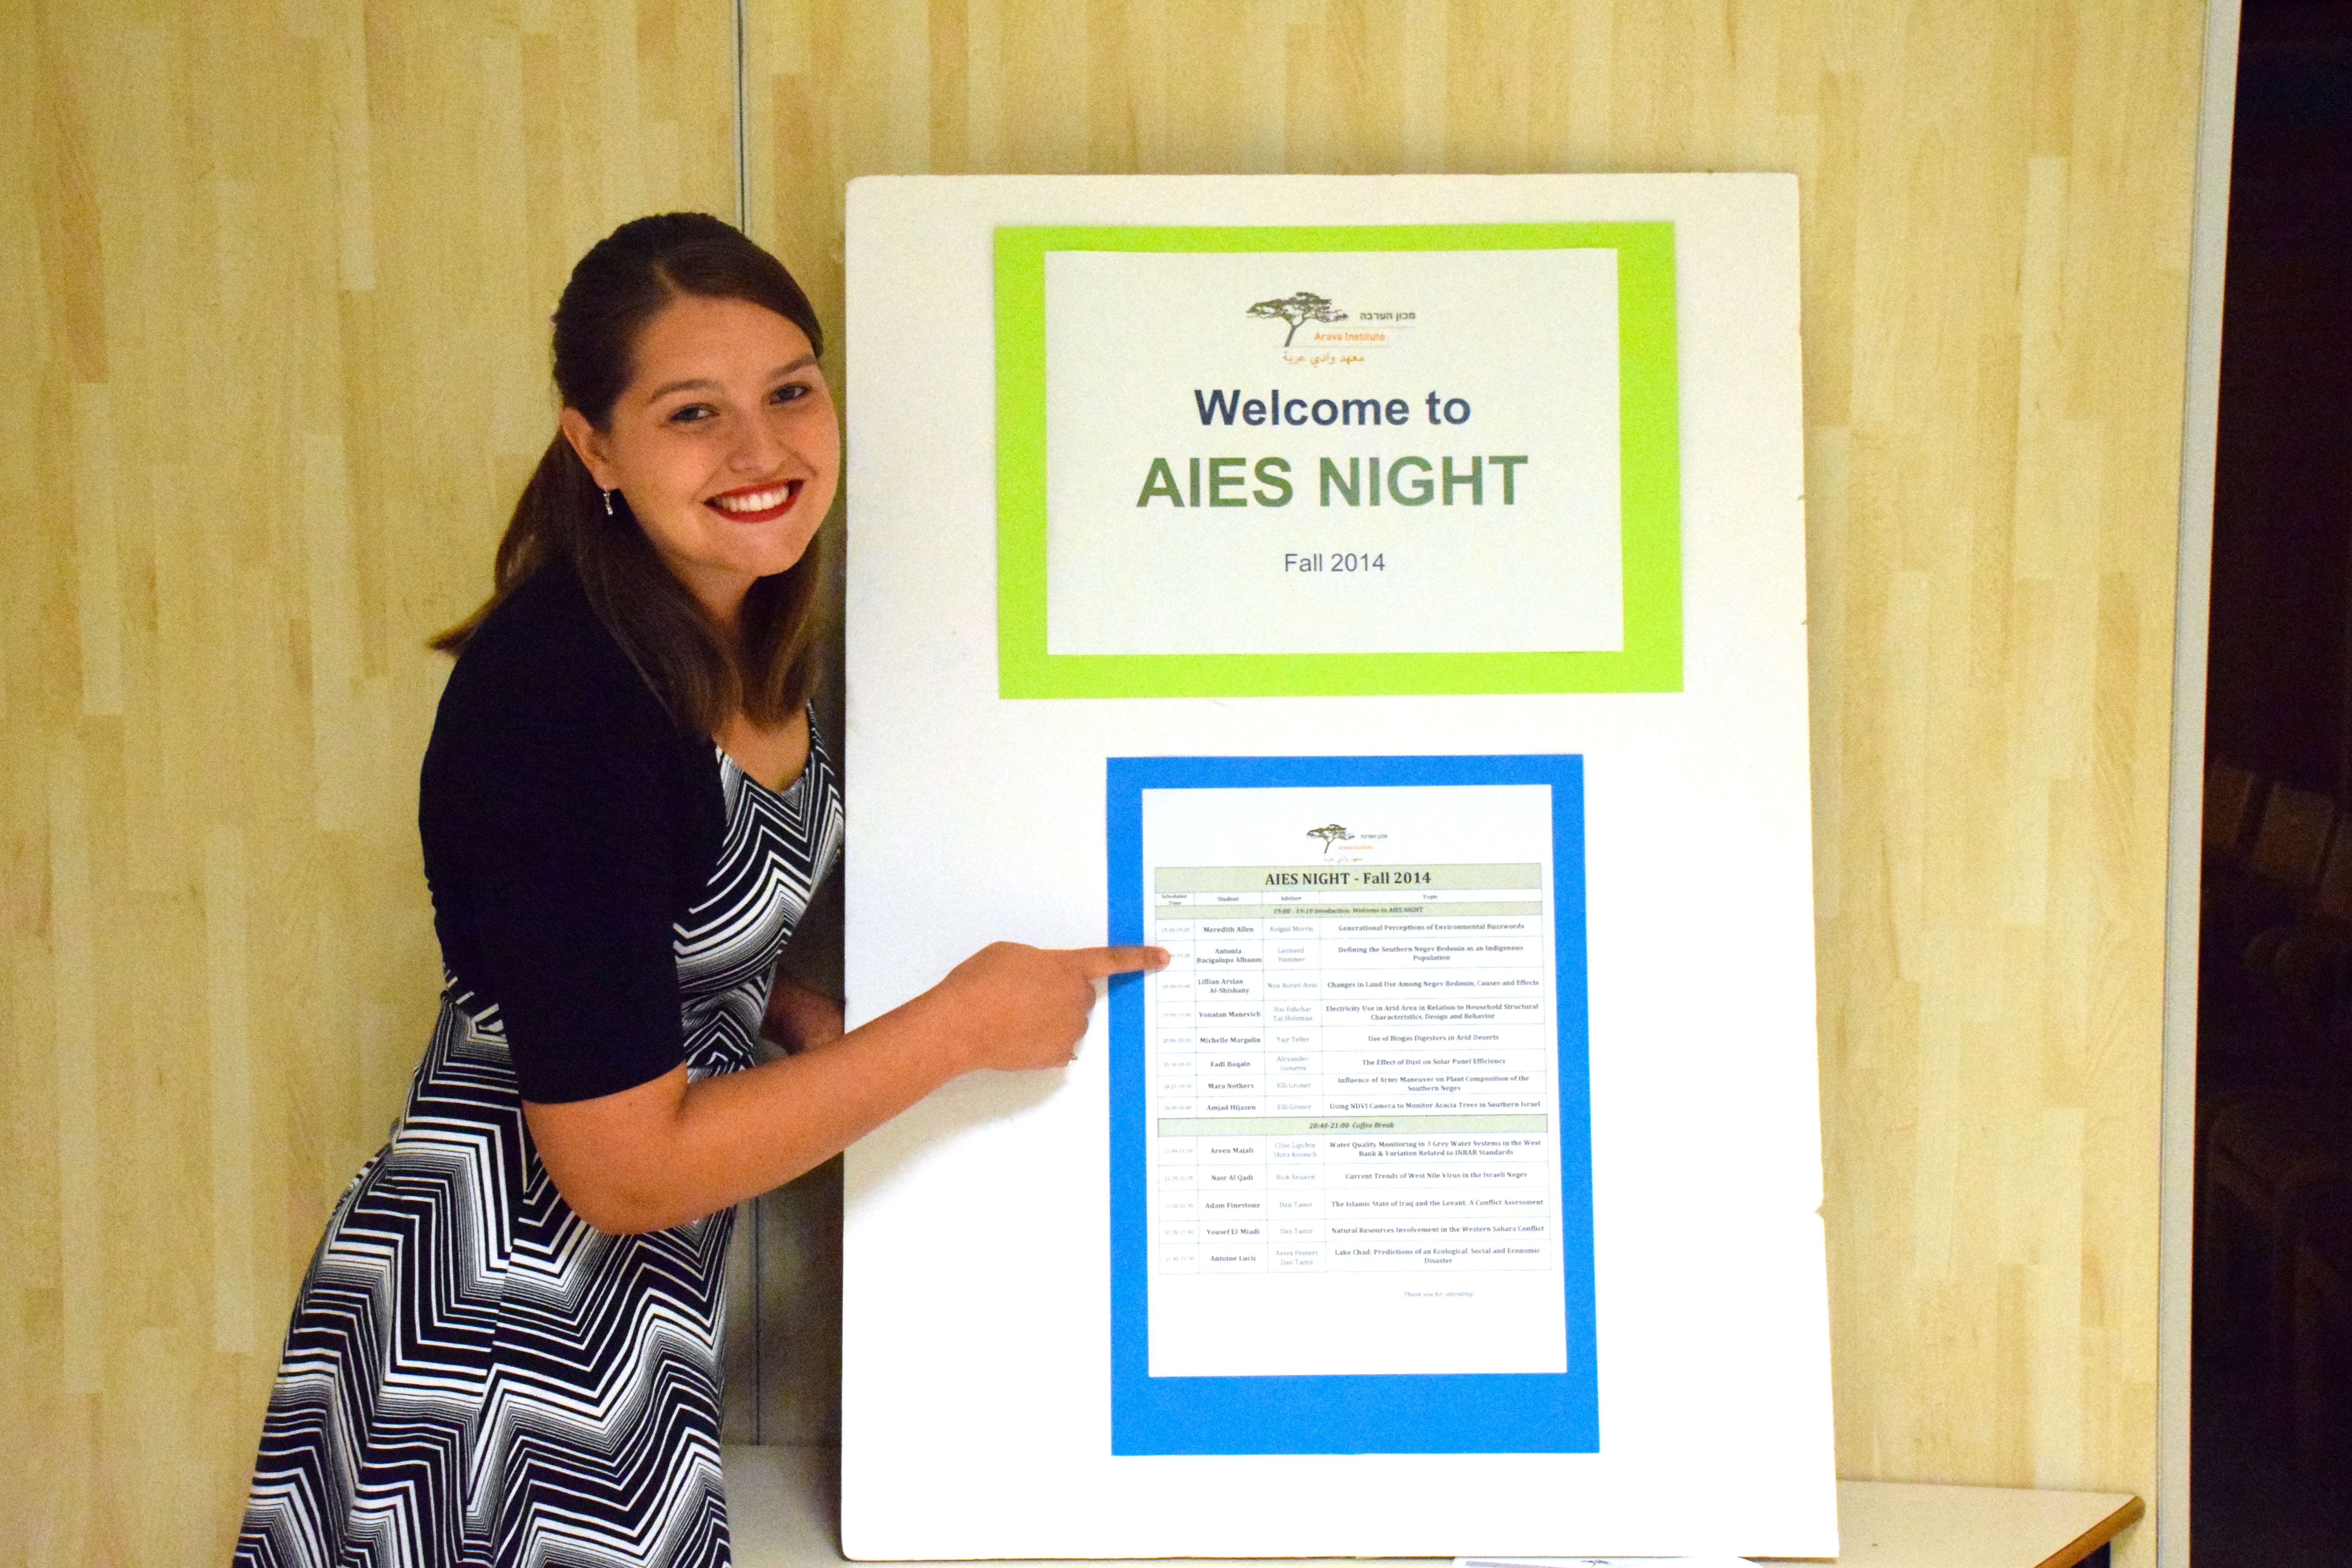 מכון הערבה
Arava Institute
معهد وادي عربة
Welcome to
AIES NIGHT
Fall 2014
מכון הערבה
Arava Institute
معهد وادي عربة
AIES NIGHT - Fall 2014
Scheduled Time Student Advisor Topic
19:00 - 19:10 Introduction: Welcome to AIES NIGHT
Meredith Allen Avigail Morris Generational Perceptions of Environmental Buzzwords
Antonia Bacigalupo Albaum Leonard Hammer Defining the Southern Negev Bedouin as an Indigenous Population
Lillian Arslan Al-Shishany Changes in Land Use Among Negev Bedouin, Causes and Effects
Yonatan Manevich Tal Holzman Electricity Use in Arid Area in Relation to Household Structural Characteristics, Design and Behavior
Michelle Margolin Yair Teller Use of Biogas Digesters in Arid Deserts
Fadi Baqain Alexander The Effect of Dust on Solar Panel Efficiency
Mara Nothers Elli Groner Influence of Army Maneuver on Plant Composition of the Southern Negev
Amjad Hijazen Elli Groner Using NDVI Camera to Monitor Acacia Trees in Southern Israel
20:40-21:00 Coffee Break
Areen Majali Clive Lipchin Shira Kronich Water Quality Monitoring in 3 Grey Water Systems in the West Bank & Variation Related to INBAR Standards
Nasr Al Qadi Current Trends of West Nile Virus in the Israeli Negev
Adam Finestone Dan Tamir The Islamic State of Iraq and the Levant: A Conflict Assessment
Yousef El-Miadi Dan Tamir Natural Resources Involvement in the Western Sahara Conflict
Antoine Lucic Dan Tamir Lake Chad: Predictions of an Ecological, Social and Economic Disaster
Thank you for attending!